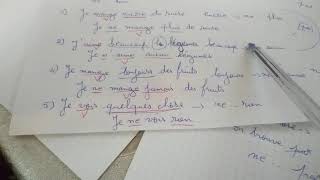 1) Je mange encore du sucre encore → ne plus
Je ne mange plus de sucre
2) J'aime beaucoup légumes beaucoup
Je n'aime aucun légumes
4) Je mange toujours des fruits toujours → ne
Je ne mange jamais des fruits
5) Je vois quelques chose → ne rien
Je ne vois rien
on trouve pas
ne